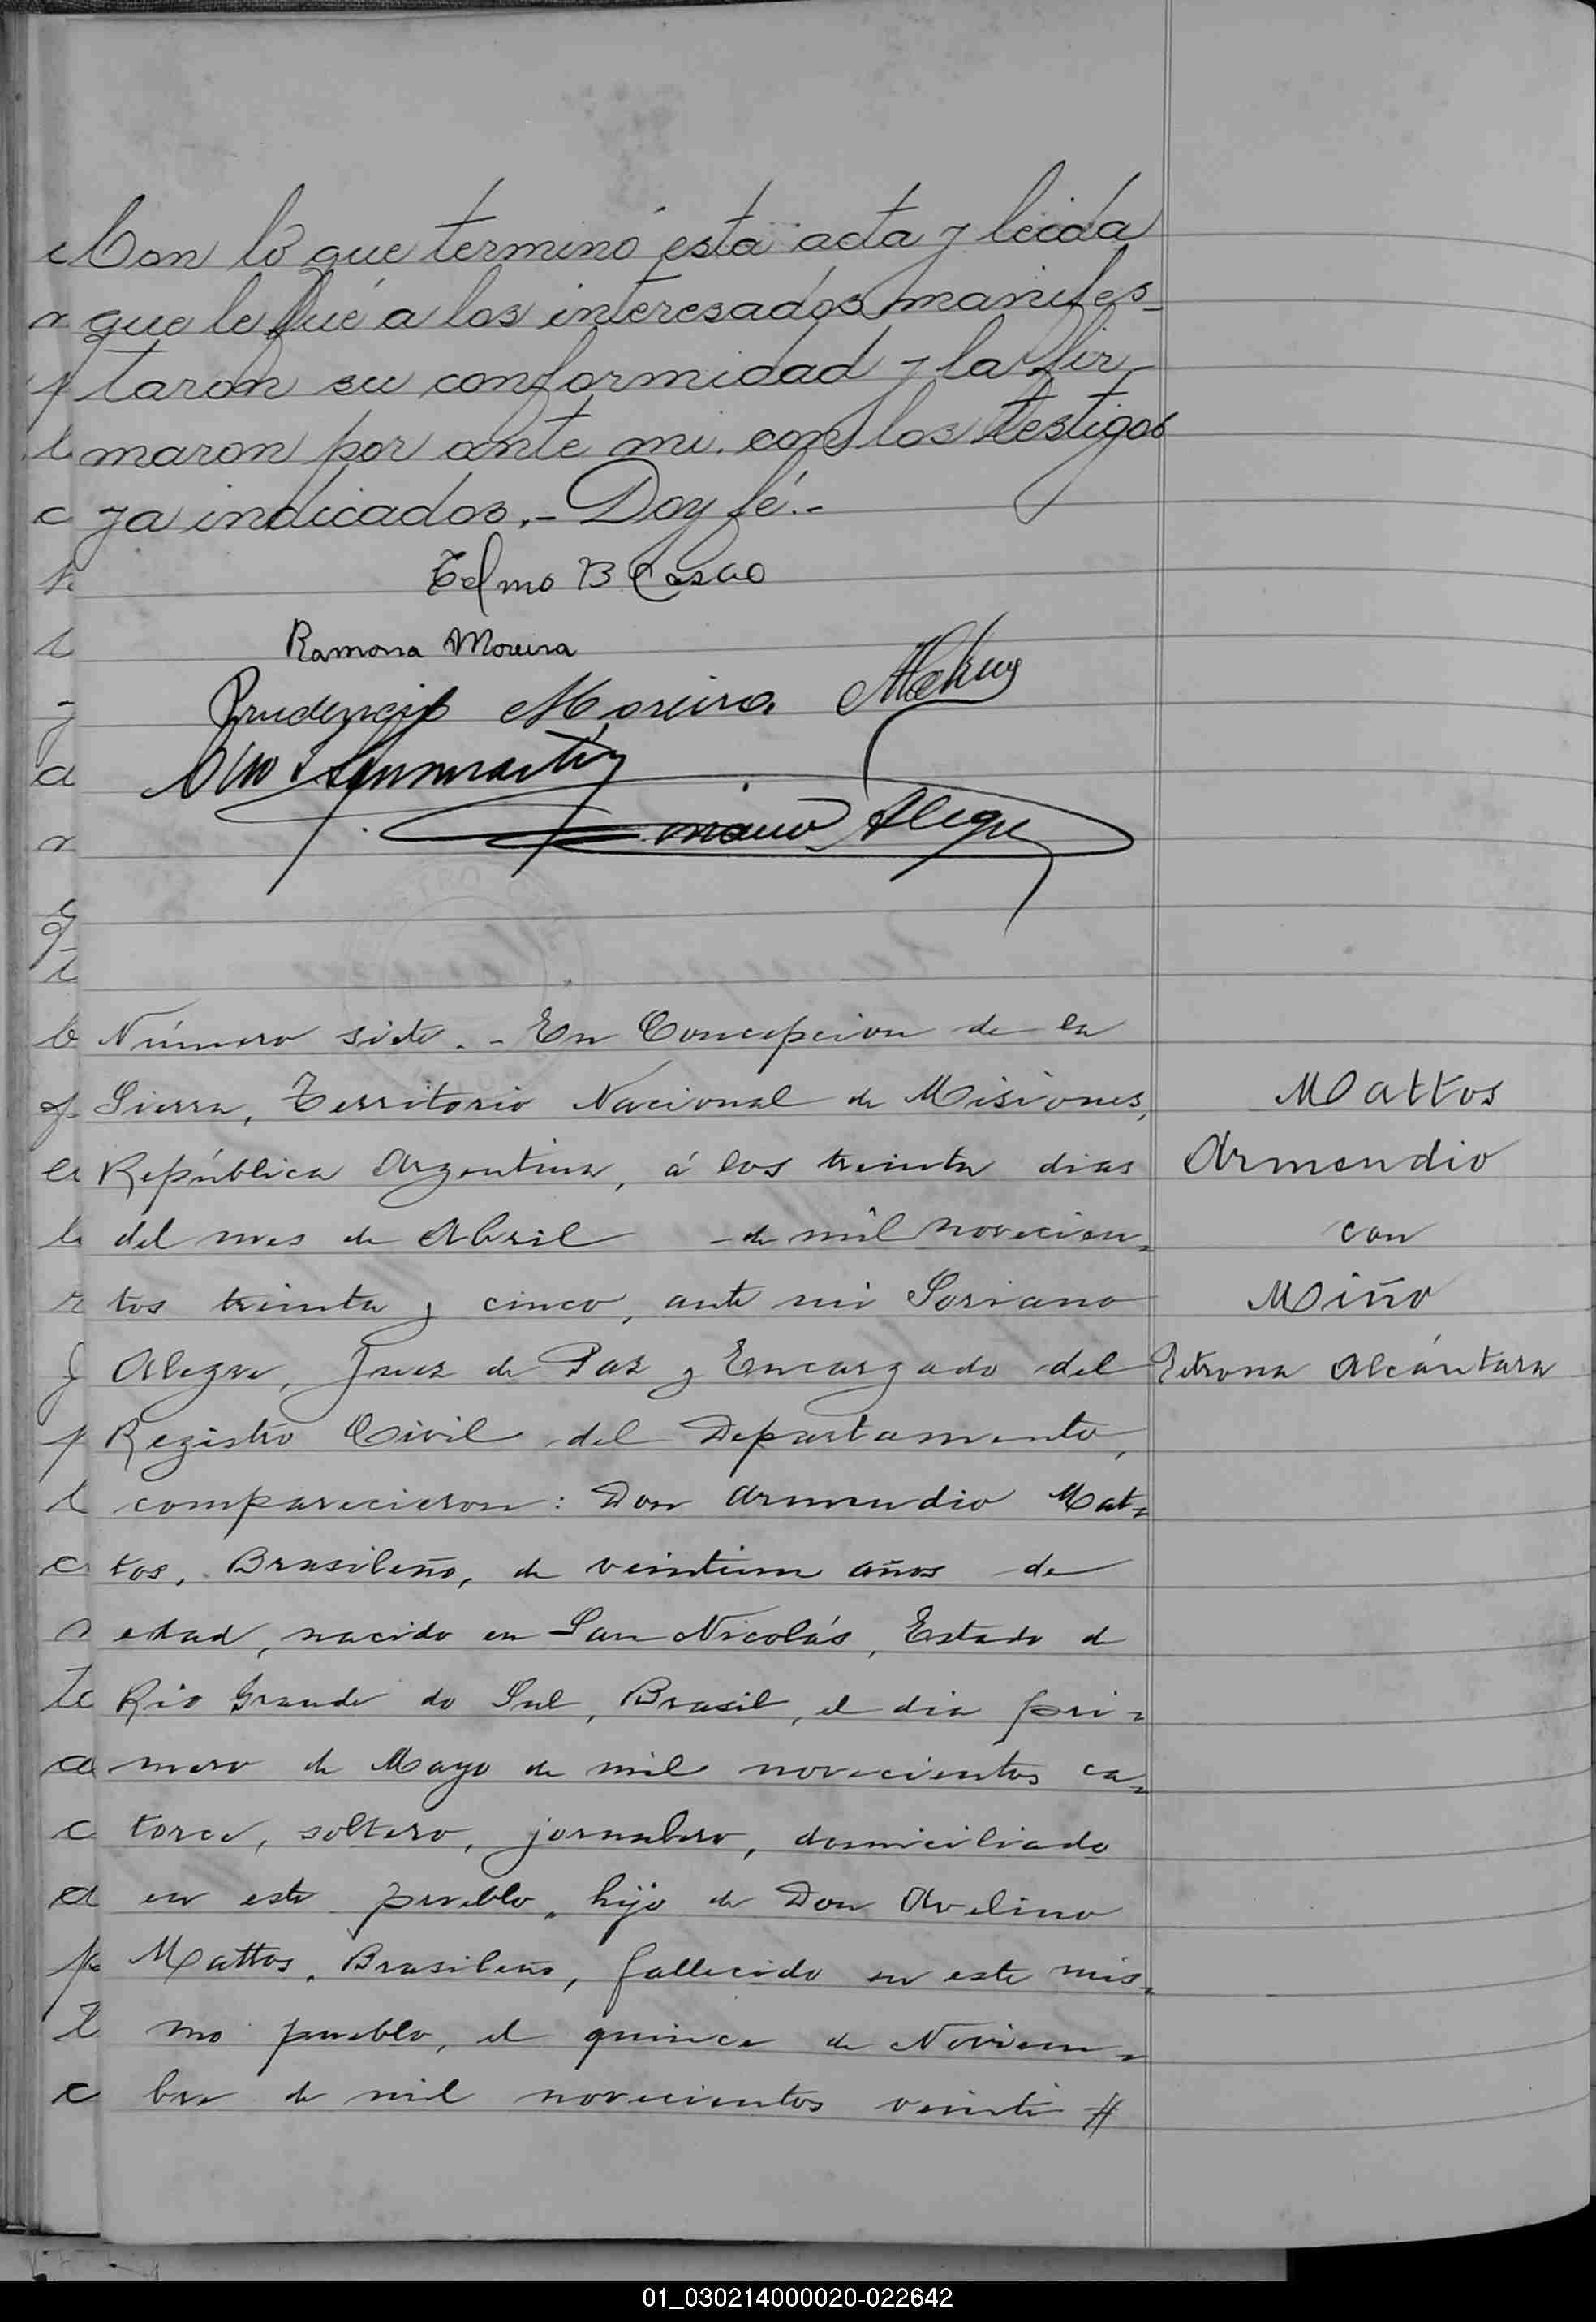 Con lo que terminó esta acta y leida
que le fué a los interesados manifes-
taron su conformidad y la fir-
maron por ante mi, con los testigos
ya indicados.- Doy fé.-
Telmo B
Ramona Moreira
Prudencio Moreira
Sanmartin
Soriano Alegre
Número siete.- En Concepcion de la
Sierra, Territorio Nacional de Misiones,
República Argentina, á los treinta dias
del mes de Abril - de mil novecien=
tos treinta y cinco, ante mi Soriano
Alegre, Juez de Paz y Encargado del
Registro Civil del Departamento,
comparecieron: Don Armendio Mat=
tos, Brasileño, de veintiun años de
edad, nacido en San Nicolás, Estado de
Rio Grande do Sul, Brasil, el dia pri=
mero de Mayo de mil novecientos ca=
torce, soltero, jornalero, domiciliado
en este pueblo, hijo de Don Avelino
Mattos, Brasileño, fallecido en este mis=
mo pueblo, el quince de Noviem=
bre de mil novecientos veinti #
Mattos
Armendio
con
Miño
Petrona Alcántara
01_030214000020-022642